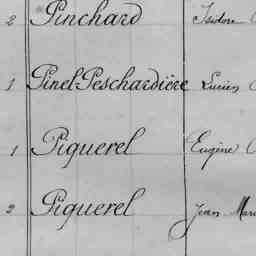 2 Pinchard Isidore
1 Pinel-Peschardière Lucien
1 Piquerel Eugène
2 Piquerel Jean Marie